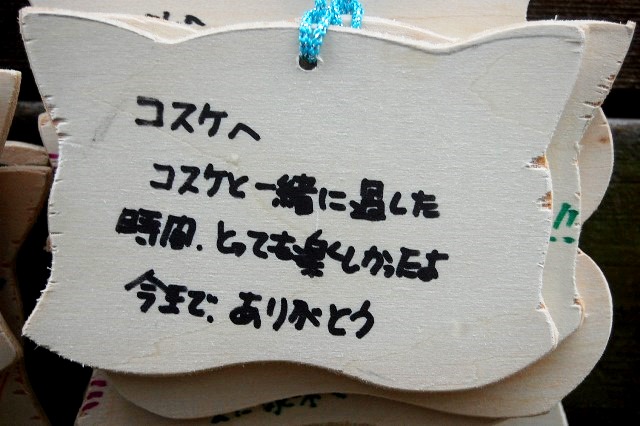 コスケへ
コスケと一緒に過した
時間、とっても楽くしかったよ
今まで、ありがとう